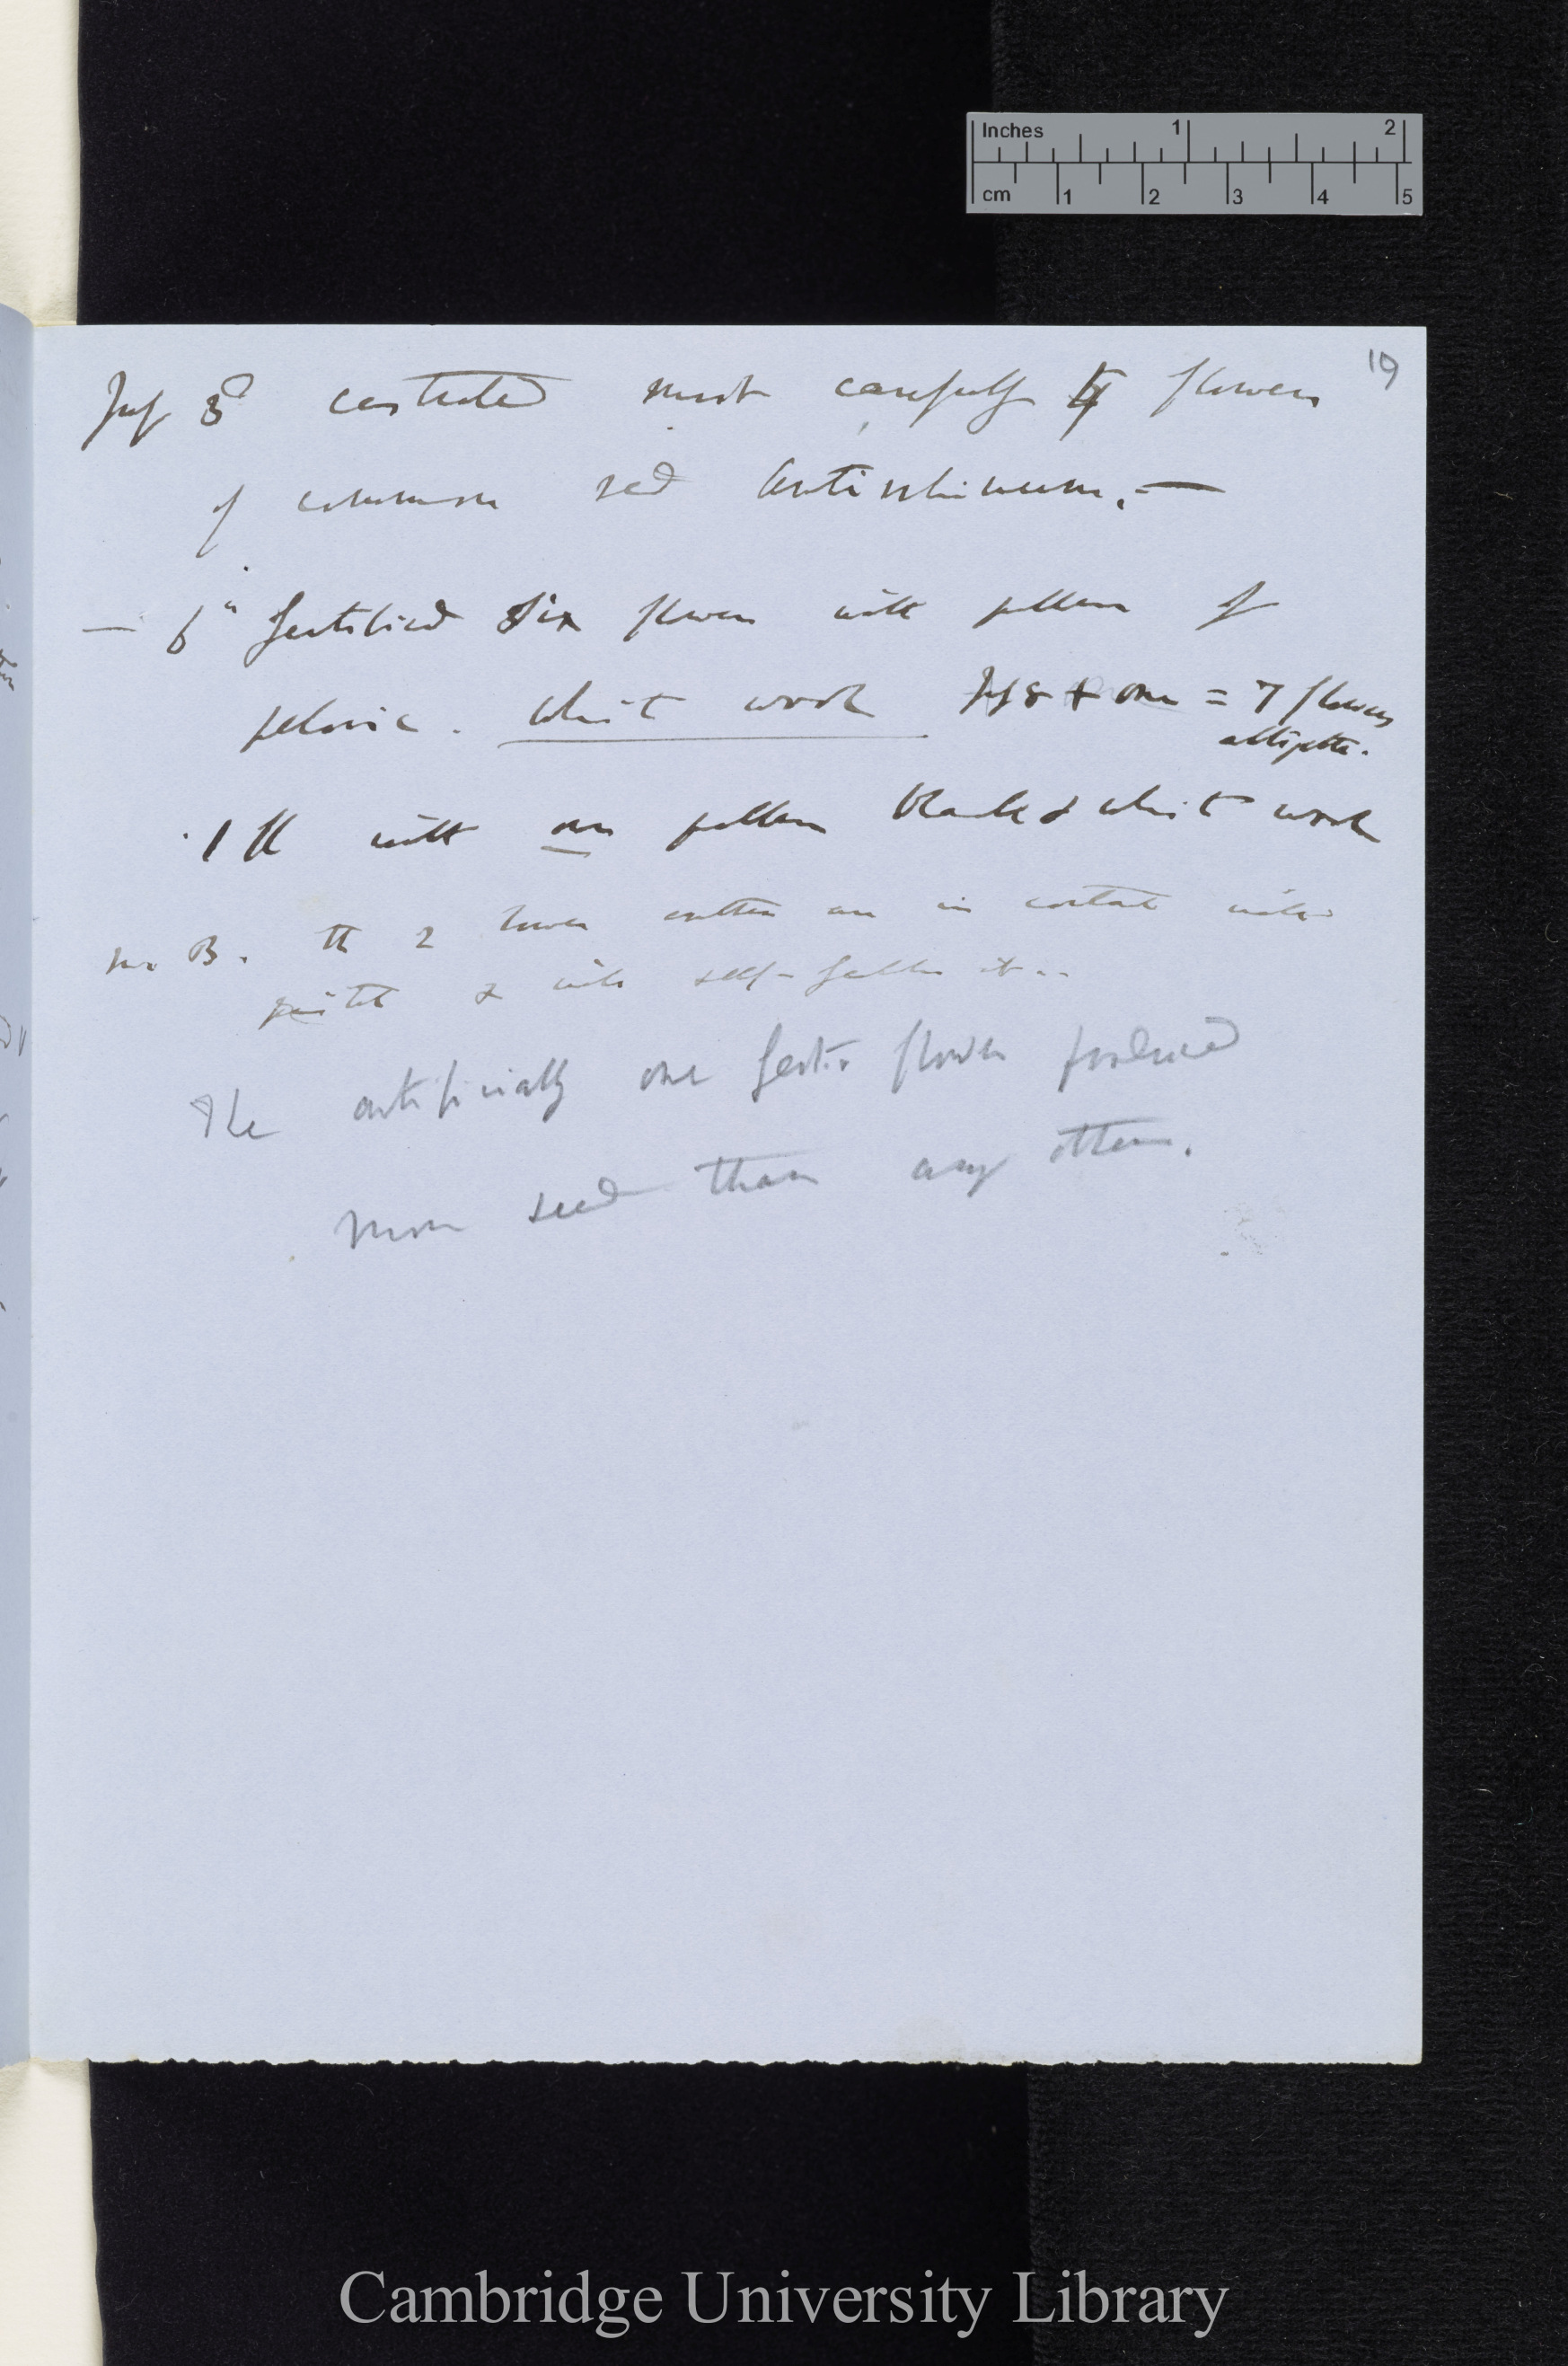 Inches 1 2
cm 1 2 3 4 5
19
July 3d castrated most carefully flowers
of common red Antirrhinum.—
— 6th fertilised six flowers with pollen of
peloric. White wool July 8 + one = 7 flowers
altogether.
1 fl with own pollen black & white wool
N. B. The 2 lower anthers are in contact with
pistil & with self-fertilise it..
The artificially one fert. flower produced
more seed than any other.
Cambridge University Library